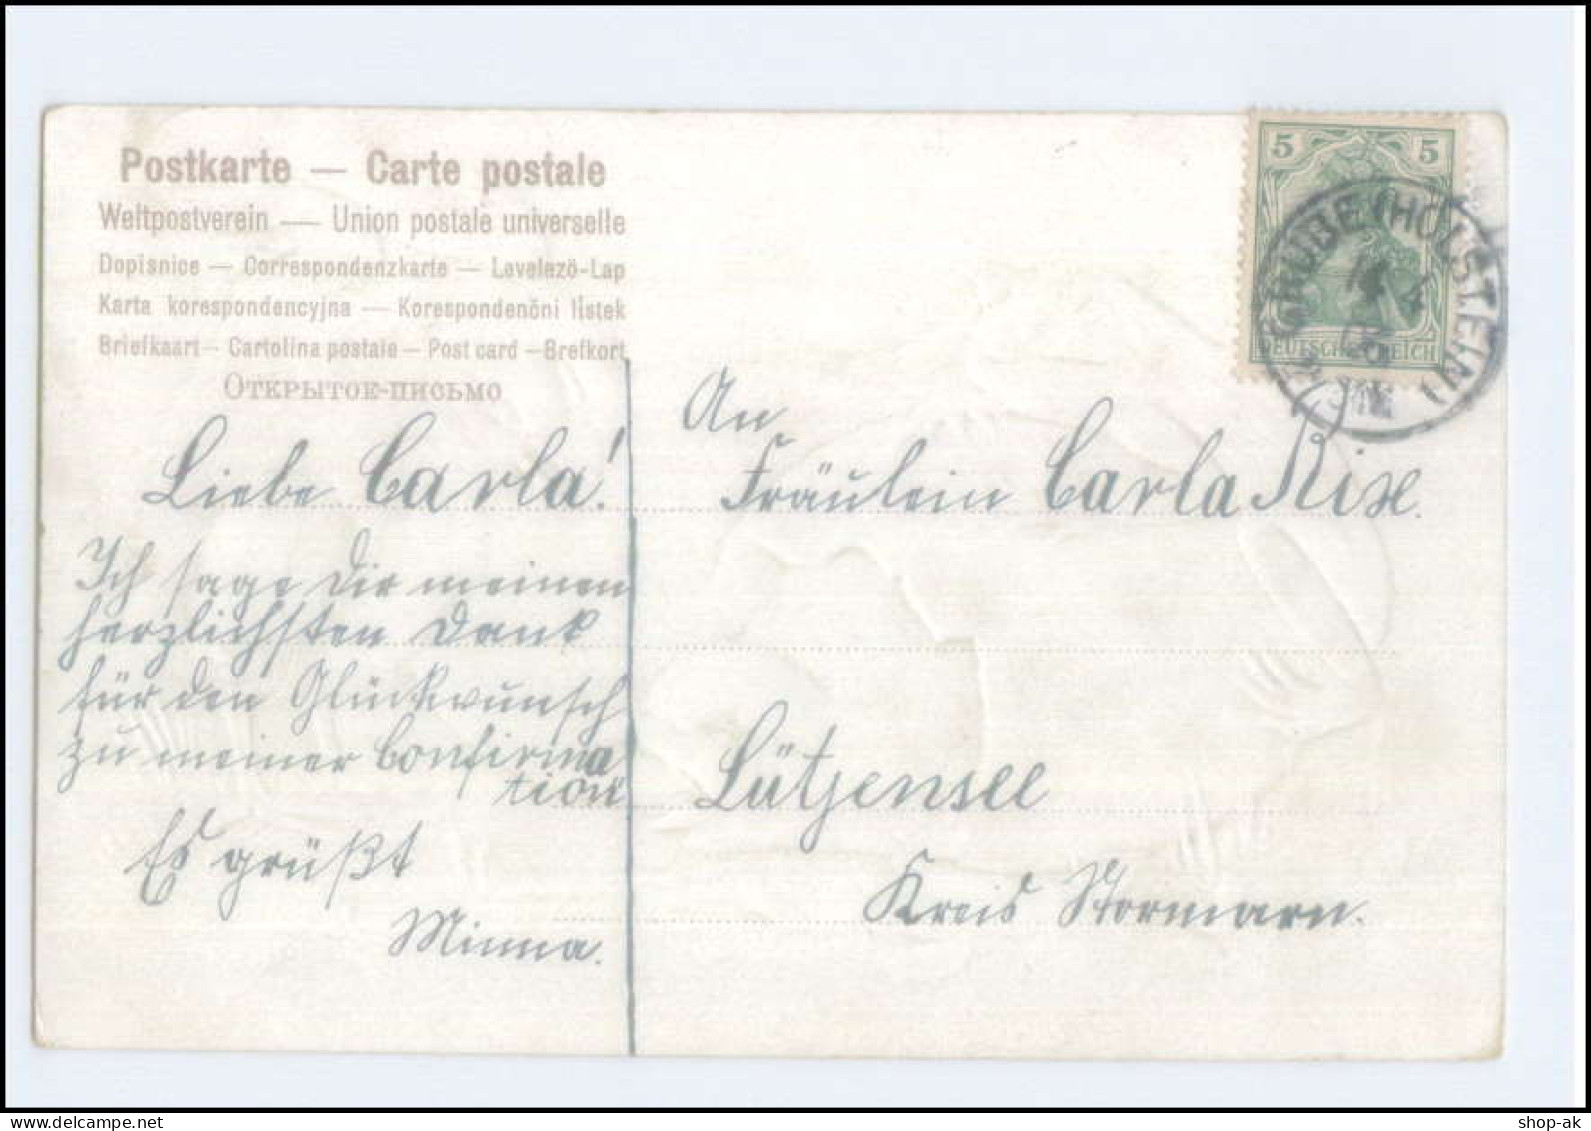 Postkarte — Carte postale
Weltpostverein — Union postale universelle
Dopisnice — Correspondenzkarte — Levelezö-Lap
Karta korespondencyjna — Korespondenční lístek
Briefkaart — Cartolina postale — Post card — Brefkort
Открытое-письмо
Liebe Carla!
Ich sage Dir meinen
herzlichsten Dank
für den Glückwunsch
zu meiner Confirma
tion
Es grüßt
Minna.
5 5
DEUTSCHES REICH
GRUBE (HOLSTEIN)
An
Fräulein Carla Rise
Lütjensee
Kreis Stormarn.
shop-ak